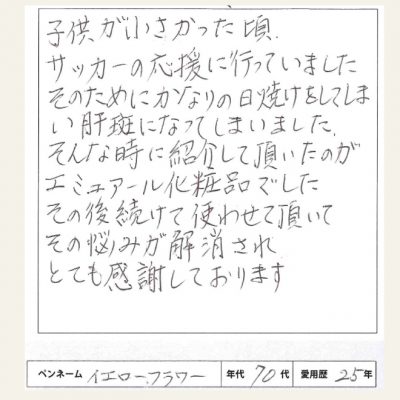 子供が小さかった頃
サッカーの応援に行っていました
そのためにかなりの日焼けをしてしま
い肝斑になってしまいました。
そんな時に紹介して頂いたのが
エミュアール化粧品でした
その後続けて使わせて頂いて
その悩みが解消され
とても感謝しております
ペンネーム イエローフラワー 年代 70代 愛用歴 25年